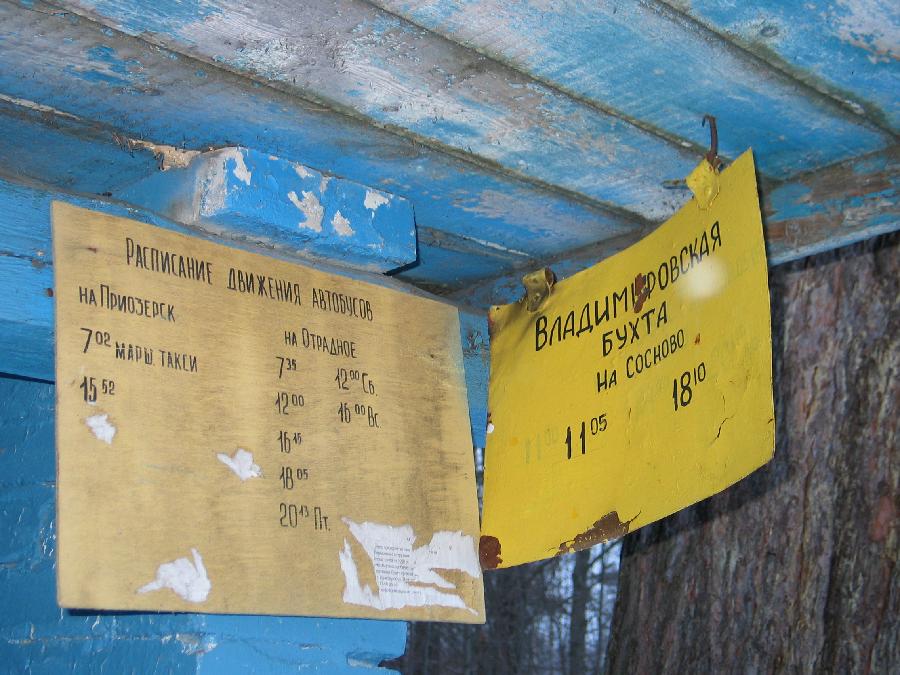 Расписание движения автобусов
на Приозерск
7 02 марш. такси
15 52
на Отрадное
7 35
12 00
16 15
18 05
20 13 Пт.
12 00 Сб.
16 00 Вс
Владимировская
бухта
на Сосново
11 05
18 10